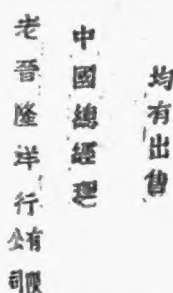 均有出售
中國總經理
老晉隆洋行有限公司